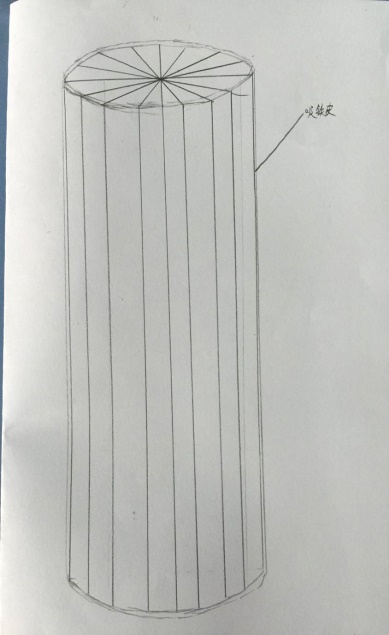 吸铁皮